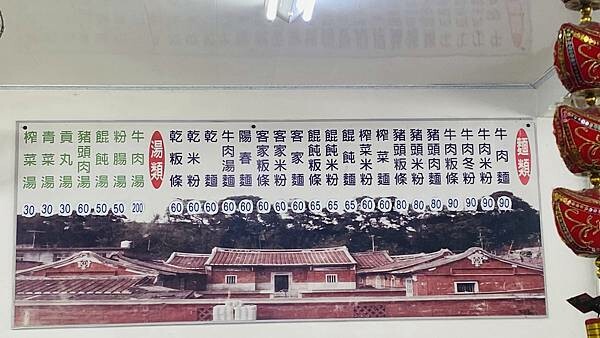 麵類
牛肉麵 90
牛肉米粉 90
牛肉冬粉 90
牛肉粄條 90
豬頭肉麵 80
豬頭米粉 80
豬頭粄條 80
榨菜麵 60
榨菜米粉 60
餛飩麵 65
餛飩米粉 65
餛飩粄條 65
客家麵 60
客家米粉 60
客家粄條 60
陽春麵 60
牛肉湯麵 60
乾麵 60
乾米粉 60
乾粄條 60
湯類
牛肉湯 200
粉腸湯 50
餛飩湯 50
豬頭肉湯 60
貢丸湯 30
青菜湯 30
榨菜湯 30